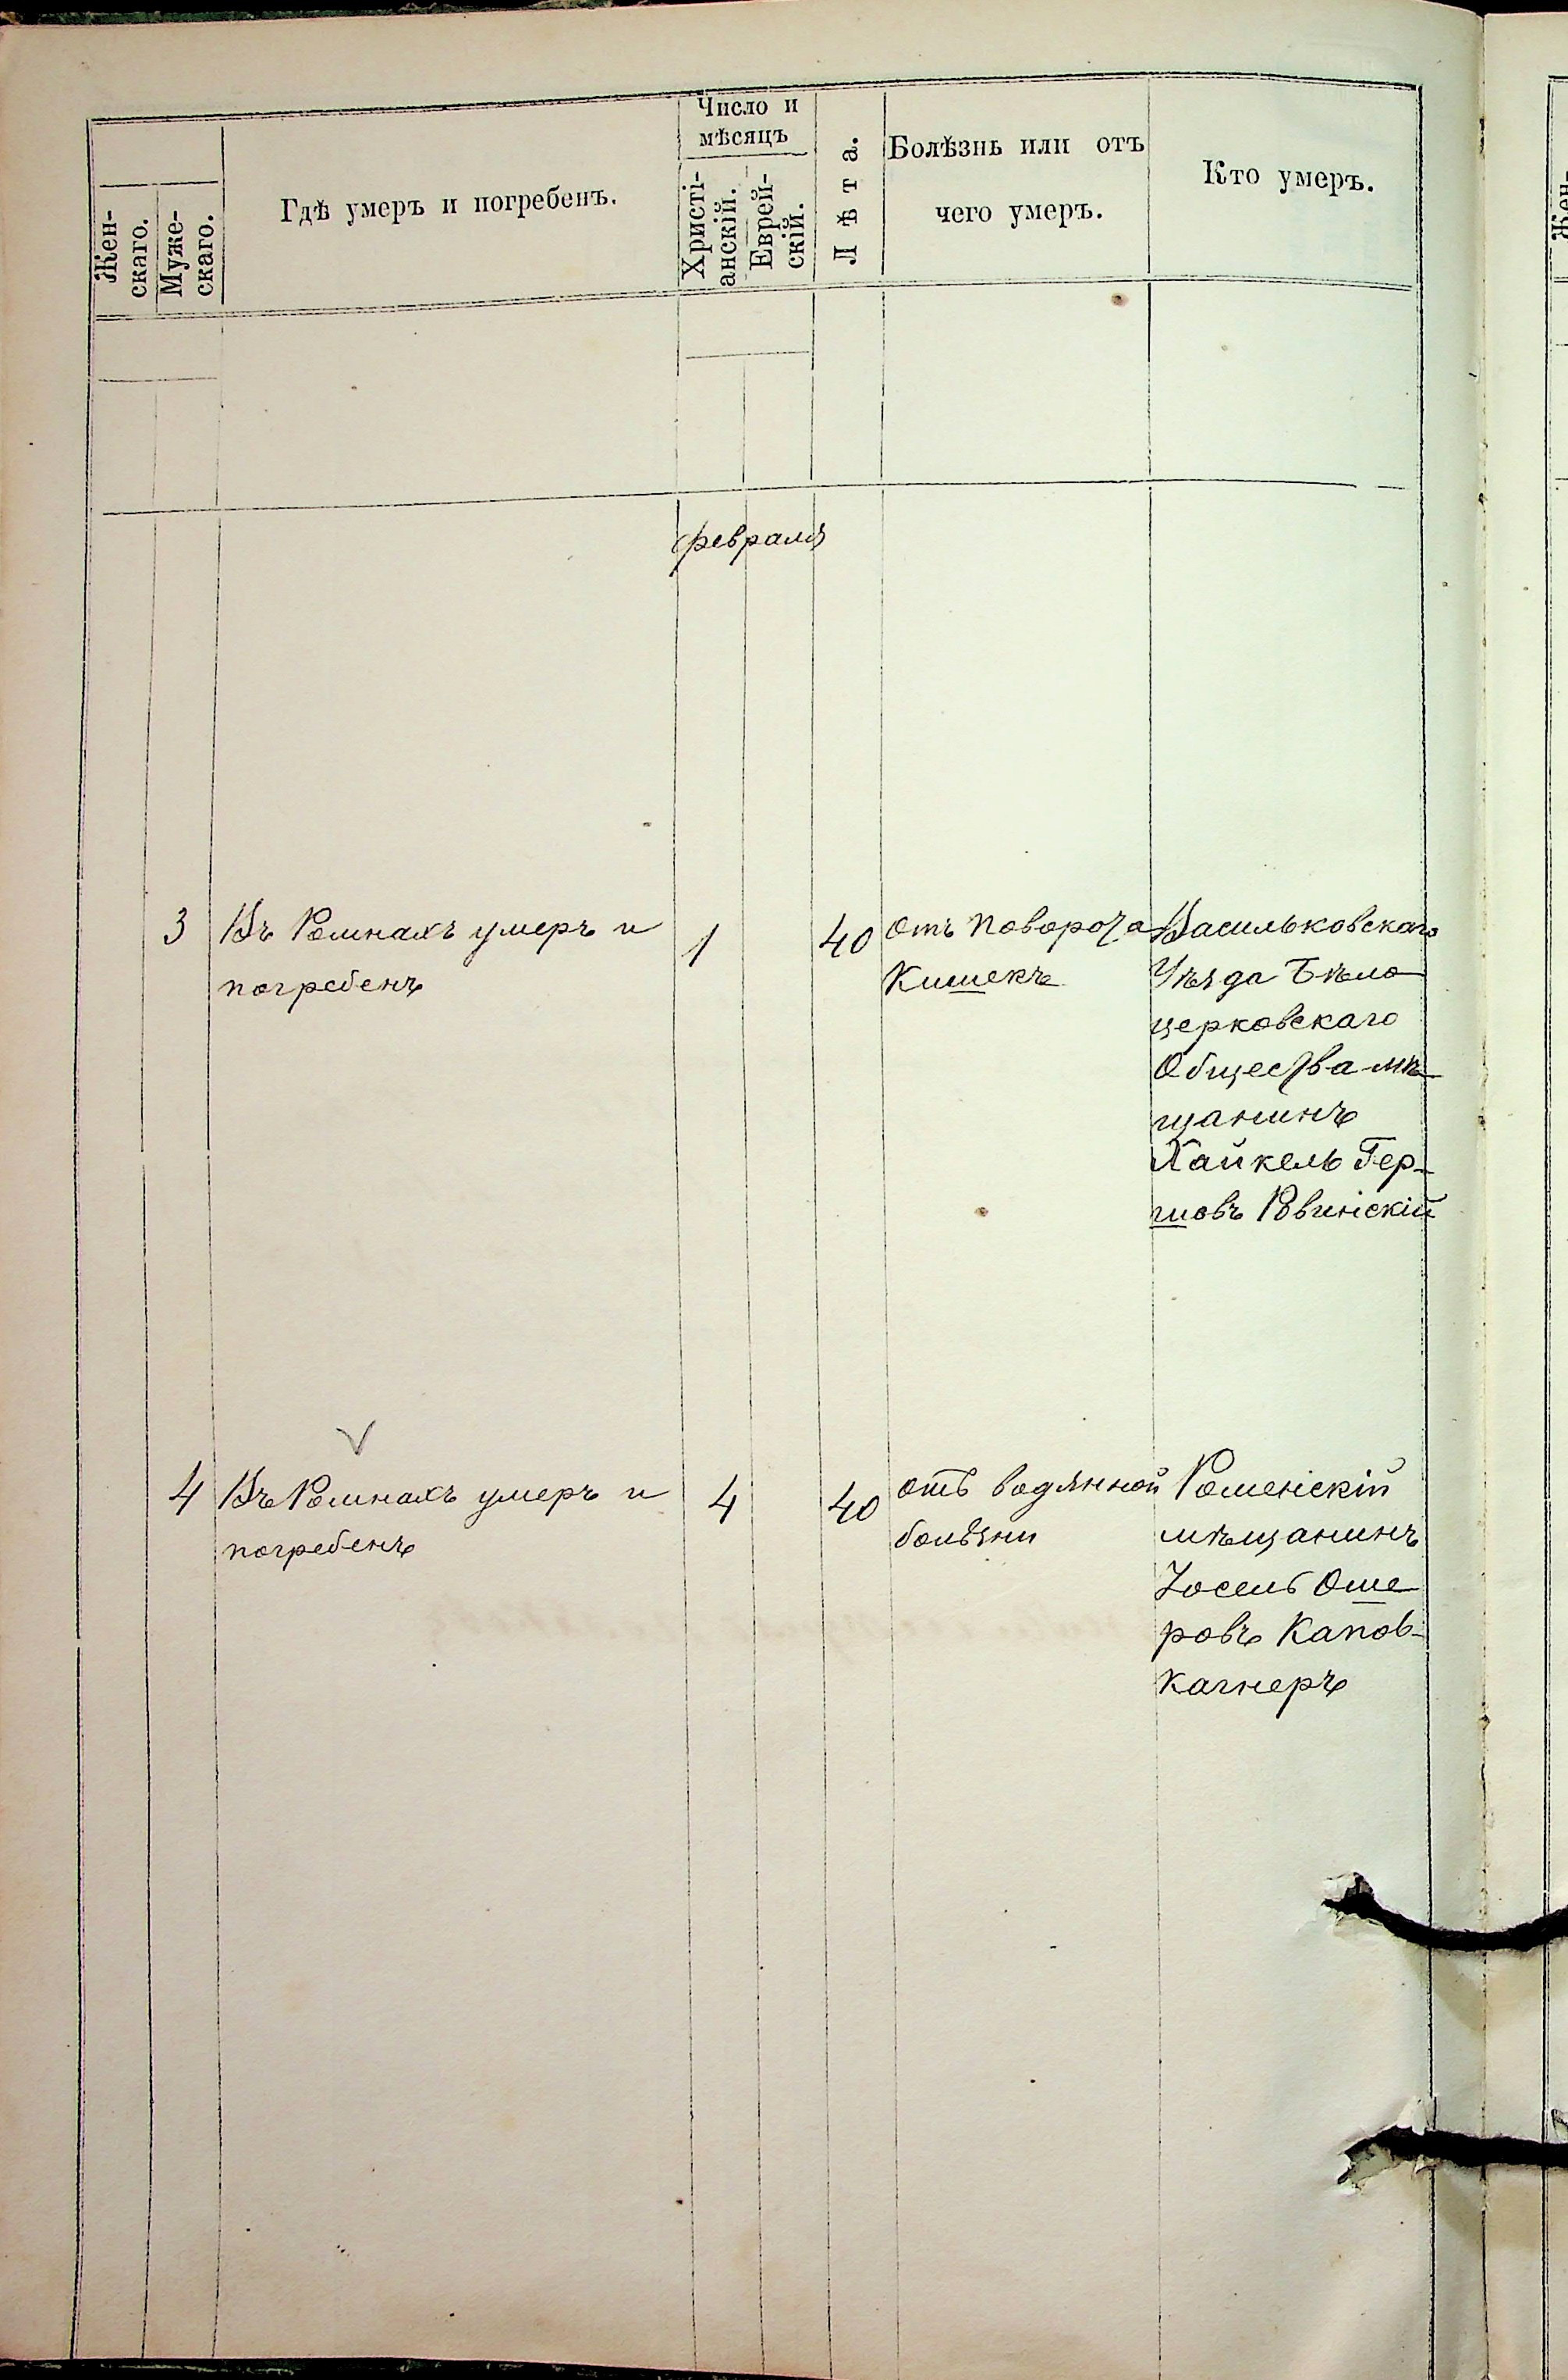 Жен-
скаго.
Муже-
скаго.
Гдѣ умеръ и погребенъ.
Число и
мѣсяцъ
Христі-
анскій.
Еврей-
скій.
Лѣта.
Болѣзнь или отъ
чего умеръ.
Кто умеръ.
февраля
3
Въ Ромнахъ умеръ и
погребенъ
1
40
отъ поворота
кишекъ
Васильковскаго
Уѣзда Бѣло
церковскаго
Общества мѣ
щанинъ
Хайкель Гер-
шовъ Рвинскій
4
Въ Ромнахъ умеръ и
погребенъ
4
40
отъ водянной
болѣзни
Роменскій
мѣщанинъ
Іосель Оше
ровъ Капов-
кагнеръ